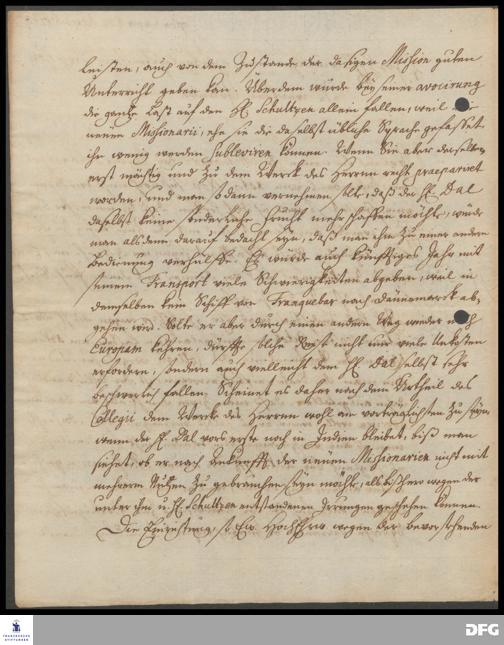 leisten, auch von dem Zustande der dasigen Mission guten
Unterricht geben kan. Überdem würde bey seiner avocirung
die gantze Last auf den H. Schultzen allein fallen, weil die
neuen Missionarii, ehe sie die daselbst übliche Sprache gefasset
ihn wenig werden subleviren können. Wenn Sie aber derselben
erst mächtig und zu dem Werck des Herrn recht praepariret
worden, und man sodann vernehmen solte, daß der H. Dal
daselbst keine sonderliche Frucht mehr schaffen möchte, würde
man alsdenn darauf bedacht seyn, daß man ihm zu einer andern
Bedienung verhülffe. Es würde auch künfftiges Jahr mit
seinem Transport viele Schwierigkeiten abgeben, weil in
demselben kein Schiff von Tranquebar nach Dännemarck ab-
gehen wird. Solte er aber durch einen andern Weg wieder nach
Europam kehren, dürffte solche Reise nicht nur viele Unkosten
erfordern, sondern auch vielleicht dem H. Dal selbst sehr
beschwerlich fallen. Scheinet es daher nach dem Urtheil des
Collegii dem Wercke des Herren wohl am vorträglichsten zu seyn
wenn der H. Dal vors erste noch in Indien bleibet, biß man
siehet, ob er nach Ankunfft der neuen Missionarien nicht mit
mehrerm Nutzen zu gebrauchen seyn möchte, als bishero wegen der
unter ihm u. H. Schultzen entstandenen Irrungen geschehen können.
Die Einrichtung, so Ew. HochEhrw. wegen der bevorstehenden
FRANCKESCHE STIFTUNGEN
DFG